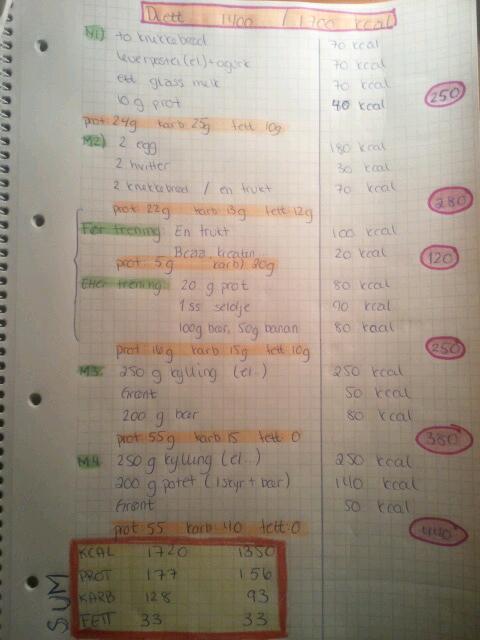 Diett 1400 / 1700 kcal
M1) to knekkebrød 70 kcal
leverpostei (el) + agurk 70 kcal
ett glass melk 70 kcal
10 g prot 40 kcal 250
prot 24g karb 25g fett 10g
M2) 2 egg 180 kcal
2 hvitter 30 kcal
2 knekkebrød / en frukt 70 kcal 280
prot 22g karb 13g fett 12g
Før trening: En frukt 100 kcal
Bcaa, kreatin 20 kcal 120
prot 5g karb) 20g
Etter trening: 20 g prot 80 kcal
1 ss seldje 90 kcal
100g bær, 50g banan 80 kcal 250
prot 16g karb 15g fett 10g
M3 250 g kylling (el..) 250 kcal
Grønt 50 kcal
200 g bær 80 kcal 380
prot 55g karb 15 fett 0
M4 250 g kylling (el..) 250 kcal
200 g potet (1 skyr + bær) 140 kcal
Grønt 50 kcal
prot 55 karb 40 fett: 0 440
SUM
KCAL 1720 1350
PROT 177 156
KARB 128 93
FETT 33 33